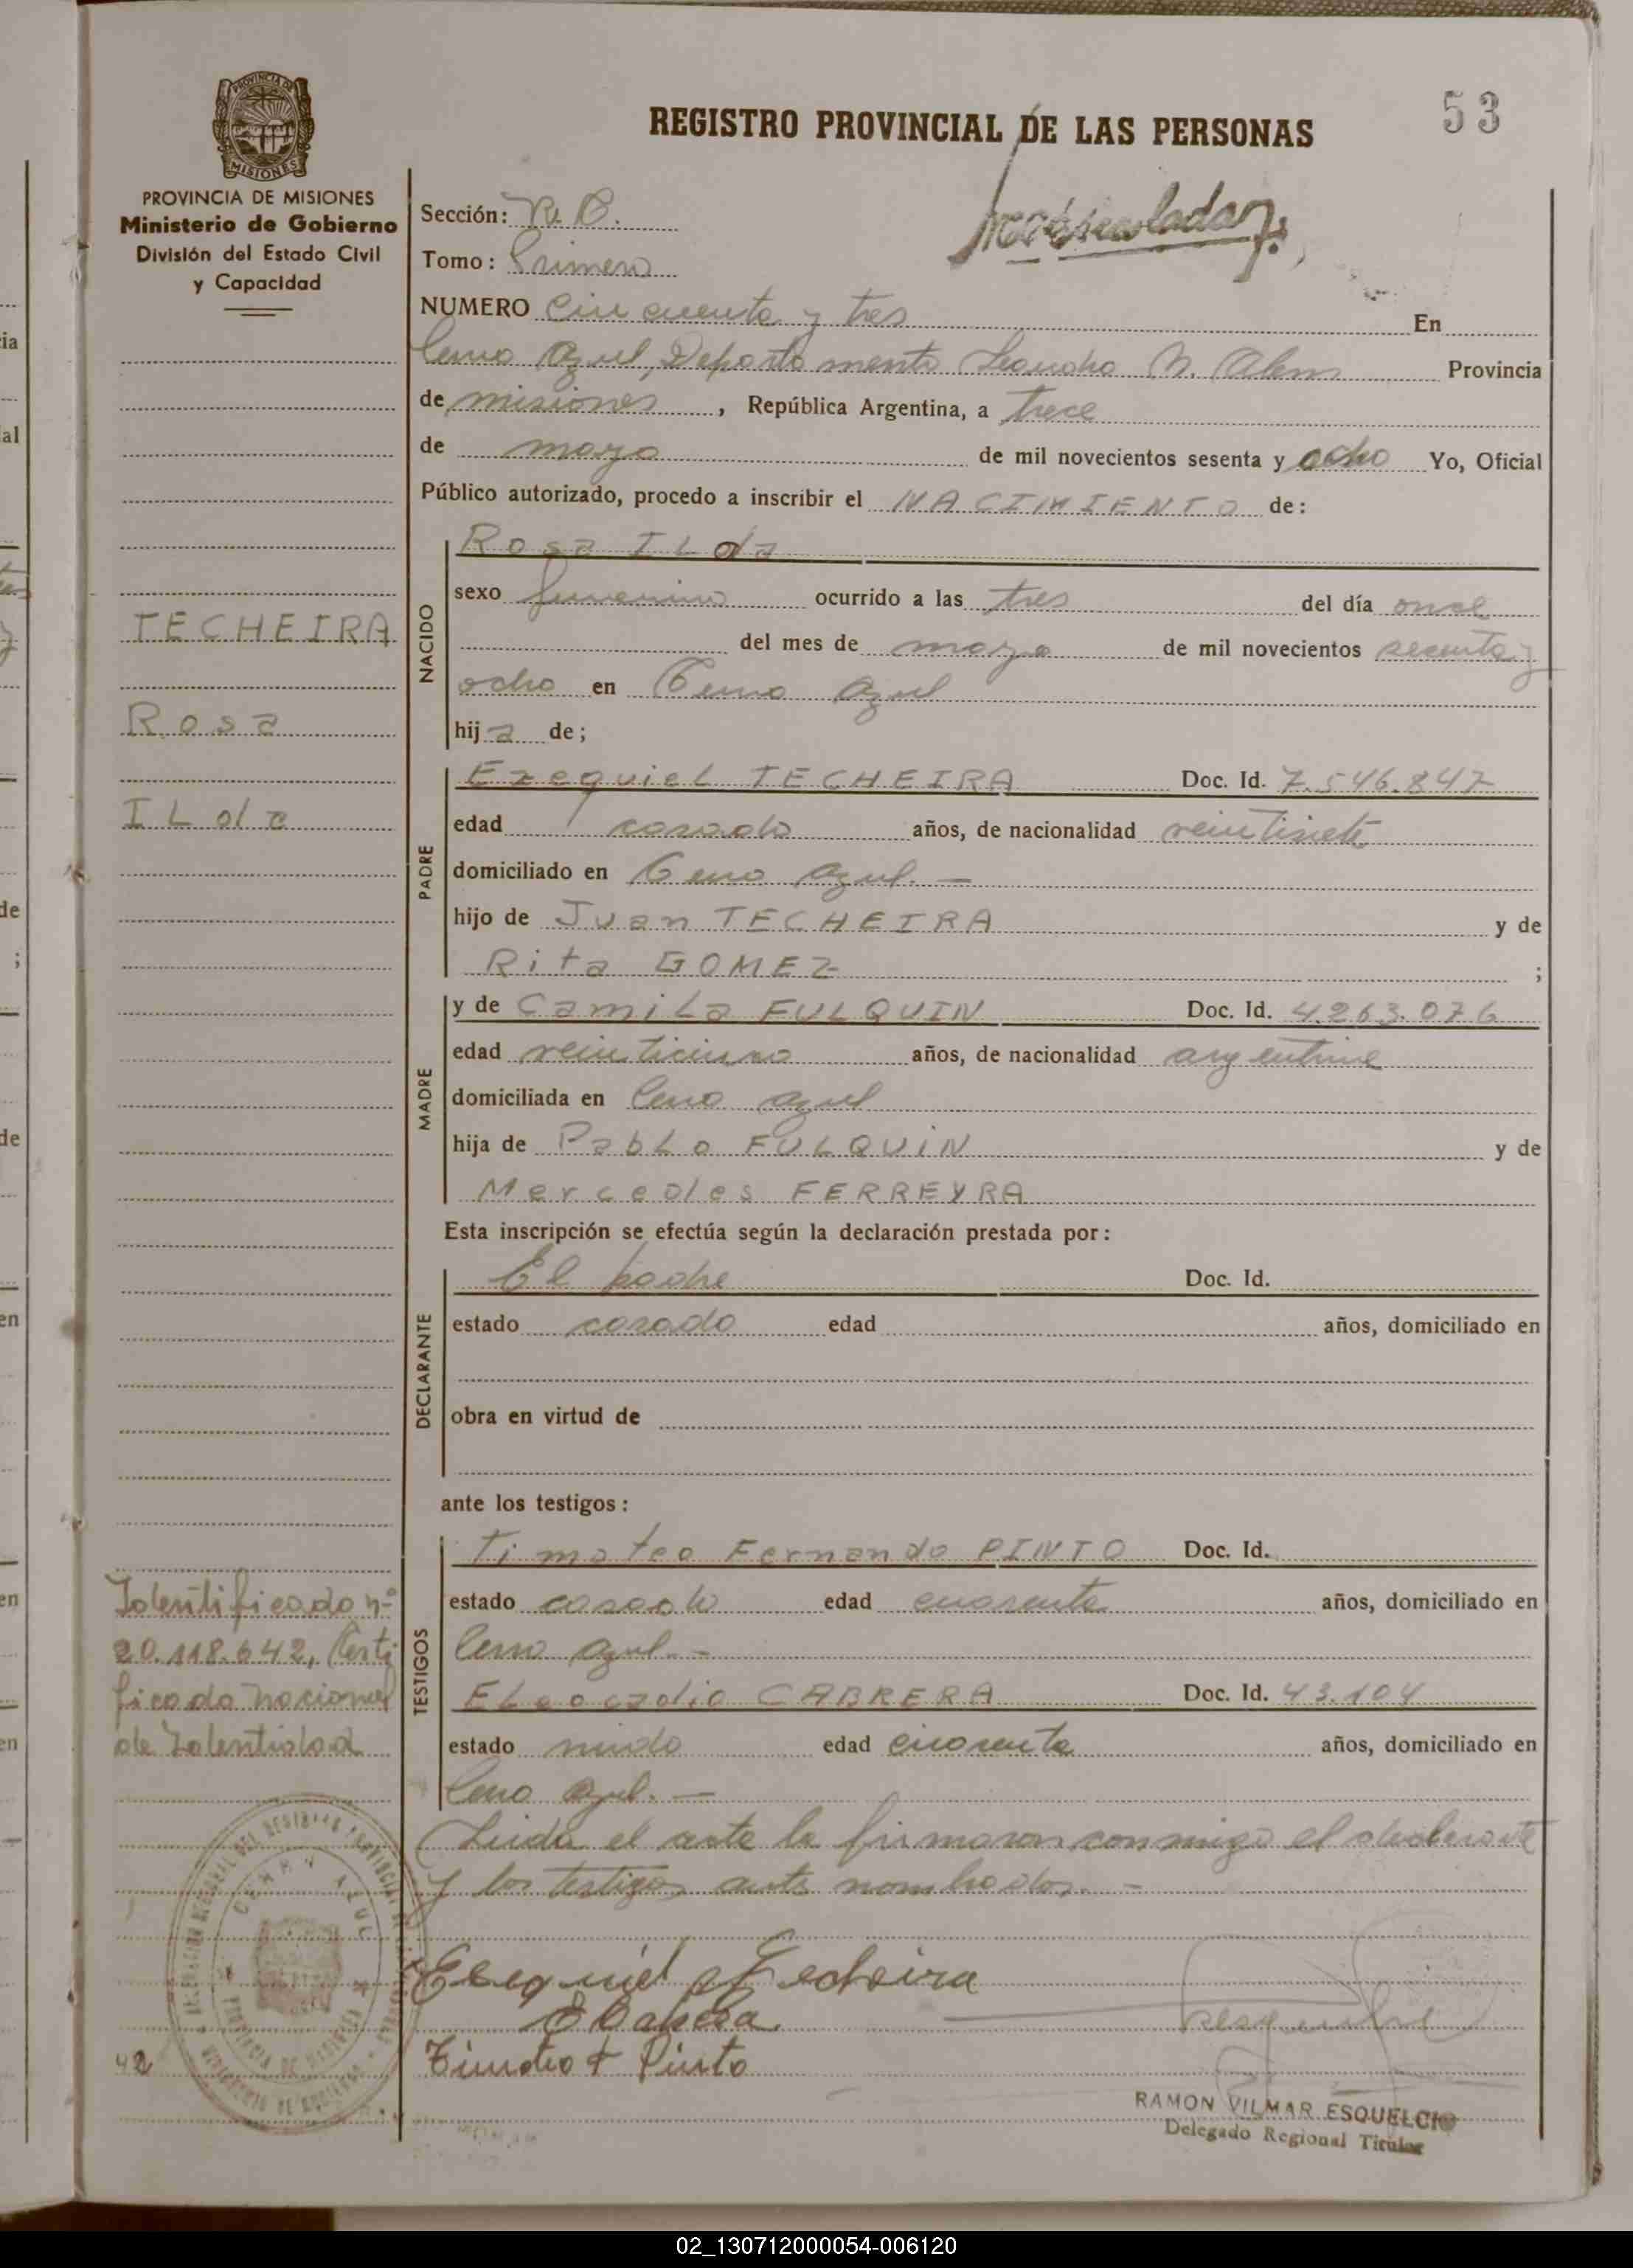 53
REGISTRO PROVINCIAL DE LAS PERSONAS
PROVINCIA DE MISIONES
Ministerio de Gobierno
División del Estado Civil
y Capacidad
Sección:
Tomo: Primero
NUMERO Cincuenta y tres En
Cerro Azul, Departamento Leandro N. Alem Provincia
de misiones, República Argentina, a trece
de mayo de mil novecientos sesenta y ocho Yo, Oficial
Público autorizado, procedo a inscribir el NACIMIENTO de:
TECHEIRA
Rosa
ILda
NACIDO
Rosa ILda
sexo femenino ocurrido a las tres del día once
del mes de mayo de mil novecientos sesenta y
ocho en Cerro Azul
hija de;
PADRE
Ezequiel TECHEIRA Doc. Id. 7.546.847
edad casado años, de nacionalidad veintisiete
domiciliado en Cerro Azul. —
hijo de Juan TECHEIRA y de
Rita GOMEZ ;
MADRE
y de Camila FULQUIN Doc. Id. 4.263.076
edad años, de nacionalidad argentina
domiciliada en Cerro azul
hija de Pablo FULQUIN y de
Mercedes FERREYRA
Esta inscripción se efectúa según la declaración prestada por:
DECLARANTE
El padre Doc. Id.
estado casado edad años, domiciliado en
obra en virtud de
ante los testigos:
TESTIGOS
Timoteo Fernando PINTO Doc. Id.
estado casado edad cuarenta años, domiciliado en
Cerro Azul. -
ELeocadio CABRERA Doc. Id. 43.104
estado viudo edad cuarenta años, domiciliado en
Cerro Azul. —
Leida el acta la firmaron conmigo el declarante
y los testigos ante nombrados. -
Identificado nº
20.118.642, Certi
ficado Nacional
de Identidad
CERRO AZUL
PROVINCIA DE MISIONES
Esequiel Techeira
Timoteo F Pinto
42
RAMON VILMAR ESQUELCIO
Delegado Regional Titular
02_130712000054-006120